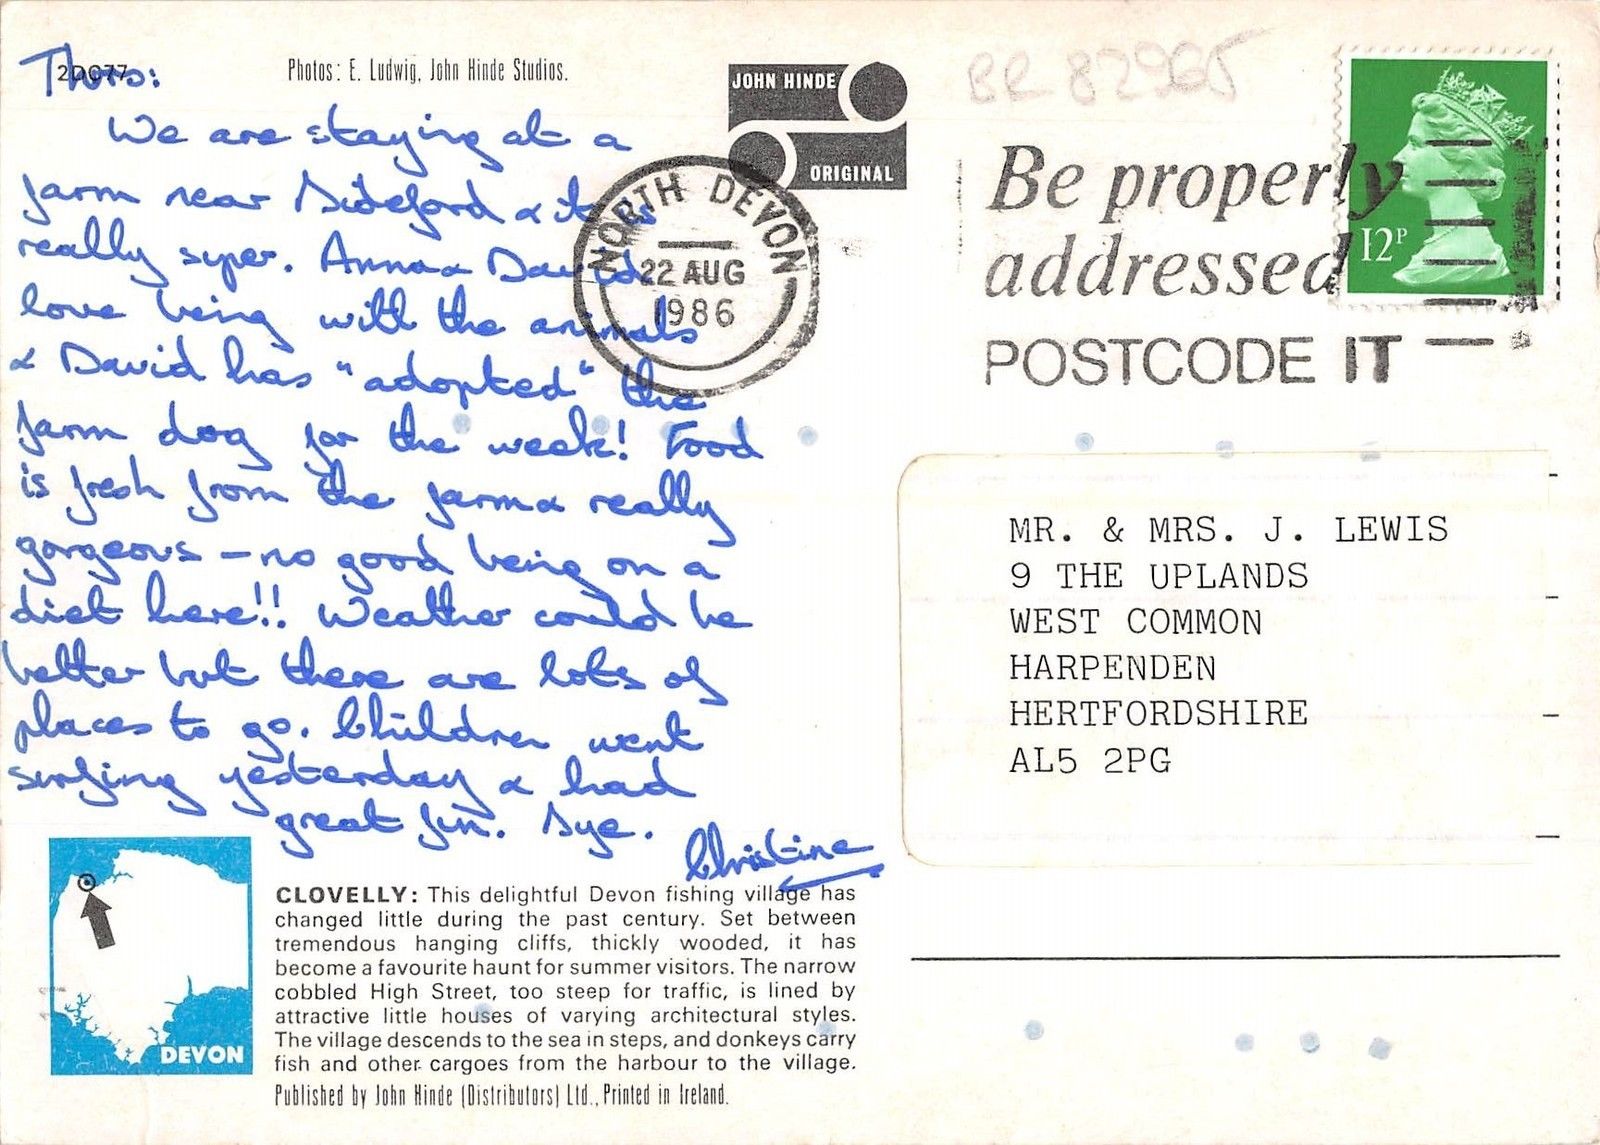 Thurs:
2DC77
Photos: E. Ludwig, John Hinde Studios.
We are staying at a
farm near Bideford & it is
really super. Anna & David
love being with the animals
& David has "adopted" the
farm dog for the week! Food
is fresh from the farm & really
gorgeous – no good being on a
diet here!! Weather could be
better but there are lots of
places to go. Children went
surfing yesterday & had
great fun. Bye.
Christine
JOHN HINDE
ORIGINAL
NORTH DEVON
22 AUG
1986
BR 82965
Be properly
addressed
POSTCODE IT
12P
MR. & MRS. J. LEWIS
9 THE UPLANDS
WEST COMMON
HARPENDEN
HERTFORDSHIRE
AL5 2PG
DEVON
CLOVELLY: This delightful Devon fishing village has
changed little during the past century. Set between
tremendous hanging cliffs, thickly wooded, it has
become a favourite haunt for summer visitors. The narrow
cobbled High Street, too steep for traffic, is lined by
attractive little houses of varying architectural styles.
The village descends to the sea in steps, and donkeys carry
fish and other cargoes from the harbour to the village.
Published by John Hinde (Distributors) Ltd., Printed in Ireland.